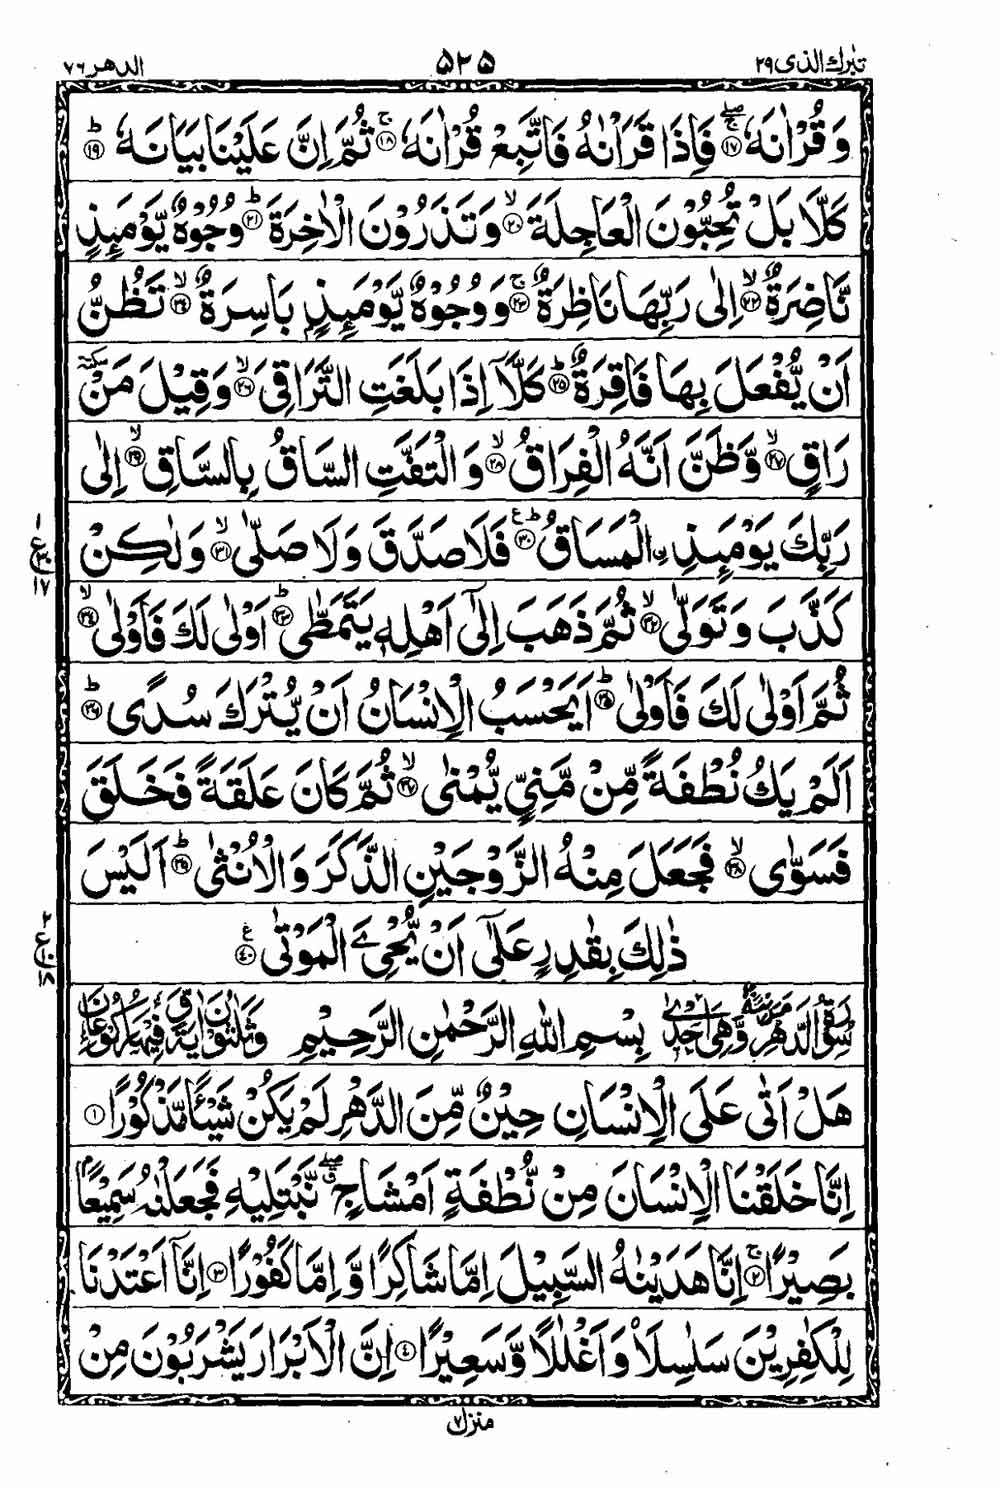 تبٰرك الذی ۲۹ ۵۲۵ الدهر ۷۶
وَ قُرْاٰنَهٗ ۚۖ۝۱۷ فَاِذَا قَرَاْنٰهُ فَاتَّبِعْ قُرْاٰنَهٗ ۚ۝۱۸ ثُمَّ اِنَّ عَلَيْنَا بَيَانَهٗ ؕ۝۱۹
كَلَّا بَلْ تُحِبُّوْنَ الْعَاجِلَةَ ۙ۝۲۰ وَ تَذَرُوْنَ الْاٰخِرَةَ ؕ۝۲۱ وُجُوْهٌ يَّوْمَىِٕذٍ
نَّاضِرَةٌ ۙ۝۲۲ اِلٰى رَبِّهَا نَاظِرَةٌ ۚ۝۲۳ وَ وُجُوْهٌ يَّوْمَىِٕذٍۭ بَاسِرَةٌ ۙ۝۲۴ تَظُنُّ
اَنْ يُّفْعَلَ بِهَا فَاقِرَةٌ ؕ۝۲۵ كَلَّاۤ اِذَا بَلَغَتِ التَّرَاقِیَ ۙ۝۲۶ وَ قِيْلَ مَنْ سكتة
رَاقٍ ۙ۝۲۷ وَّ ظَنَّ اَنَّهُ الْفِرَاقُ ۙ۝۲۸ وَ الْتَفَّتِ السَّاقُ بِالسَّاقِ ۙ۝۲۹ اِلٰى
رَبِّكَ يَوْمَىِٕذِ ِ۟الْمَسَاقُ ؕ۠۝۳۰ فَلَا صَدَّقَ وَ لَا صَلّٰى ۙ۝۳۱ وَ لٰكِنْ
كَذَّبَ وَ تَوَلّٰى ۙ۝۳۲ ثُمَّ ذَهَبَ اِلٰۤى اَهْلِهٖ يَتَمَطّٰى ؕ۝۳۳ اَوْلٰى لَكَ فَاَوْلٰى ۙ۝۳۴
ثُمَّ اَوْلٰى لَكَ فَاَوْلٰى ؕ۝۳۵ اَيَحْسَبُ الْاِنْسَانُ اَنْ يُّتْرَكَ سُدًى ؕ۝۳۶
اَلَمْ يَكُ نُطْفَةً مِّنْ مَّنِیٍّ يُّمْنٰى ۙ۝۳۷ ثُمَّ كَانَ عَلَقَةً فَخَلَقَ
فَسَوّٰى ۙ۝۳۸ فَجَعَلَ مِنْهُ الزَّوْجَيْنِ الذَّكَرَ وَ الْاُنْثٰى ؕ۝۳۹ اَلَيْسَ
ذٰلِكَ بِقٰدِرٍ عَلٰۤى اَنْ يُّحْیِۦَ الْمَوْتٰى ۠۝۴۰
سُوْرَةُ الدَّهْرِ مَدَنِيَّةٌ وَّهِىَ اِحْدٰى بِسْمِ اللّٰهِ الرَّحْمٰنِ الرَّحِيْمِ وَّثَلٰثُوْنَ اٰيَةً وَّفِيْهَا رُكُوْعَانِ
هَلْ اَتٰى عَلَى الْاِنْسَانِ حِيْنٌ مِّنَ الدَّهْرِ لَمْ يَكُنْ شَيْـًٔا مَّذْكُوْرًا ۝۱
اِنَّا خَلَقْنَا الْاِنْسَانَ مِنْ نُّطْفَةٍ اَمْشَاجٍ ۖۗ نَّبْتَلِيْهِ فَجَعَلْنٰهُ سَمِيْعًۢا
بَصِيْرًا ۚ۝۲ اِنَّا هَدَيْنٰهُ السَّبِيْلَ اِمَّا شَاكِرًا وَّ اِمَّا كَفُوْرًا ۝۳ اِنَّاۤ اَعْتَدْنَا
لِلْكٰفِرِيْنَ سَلٰسِلَا۠ وَ اَغْلٰلًا وَّ سَعِيْرًا ۝۴ اِنَّ الْاَبْرَارَ يَشْرَبُوْنَ مِنْ
منزل ۷